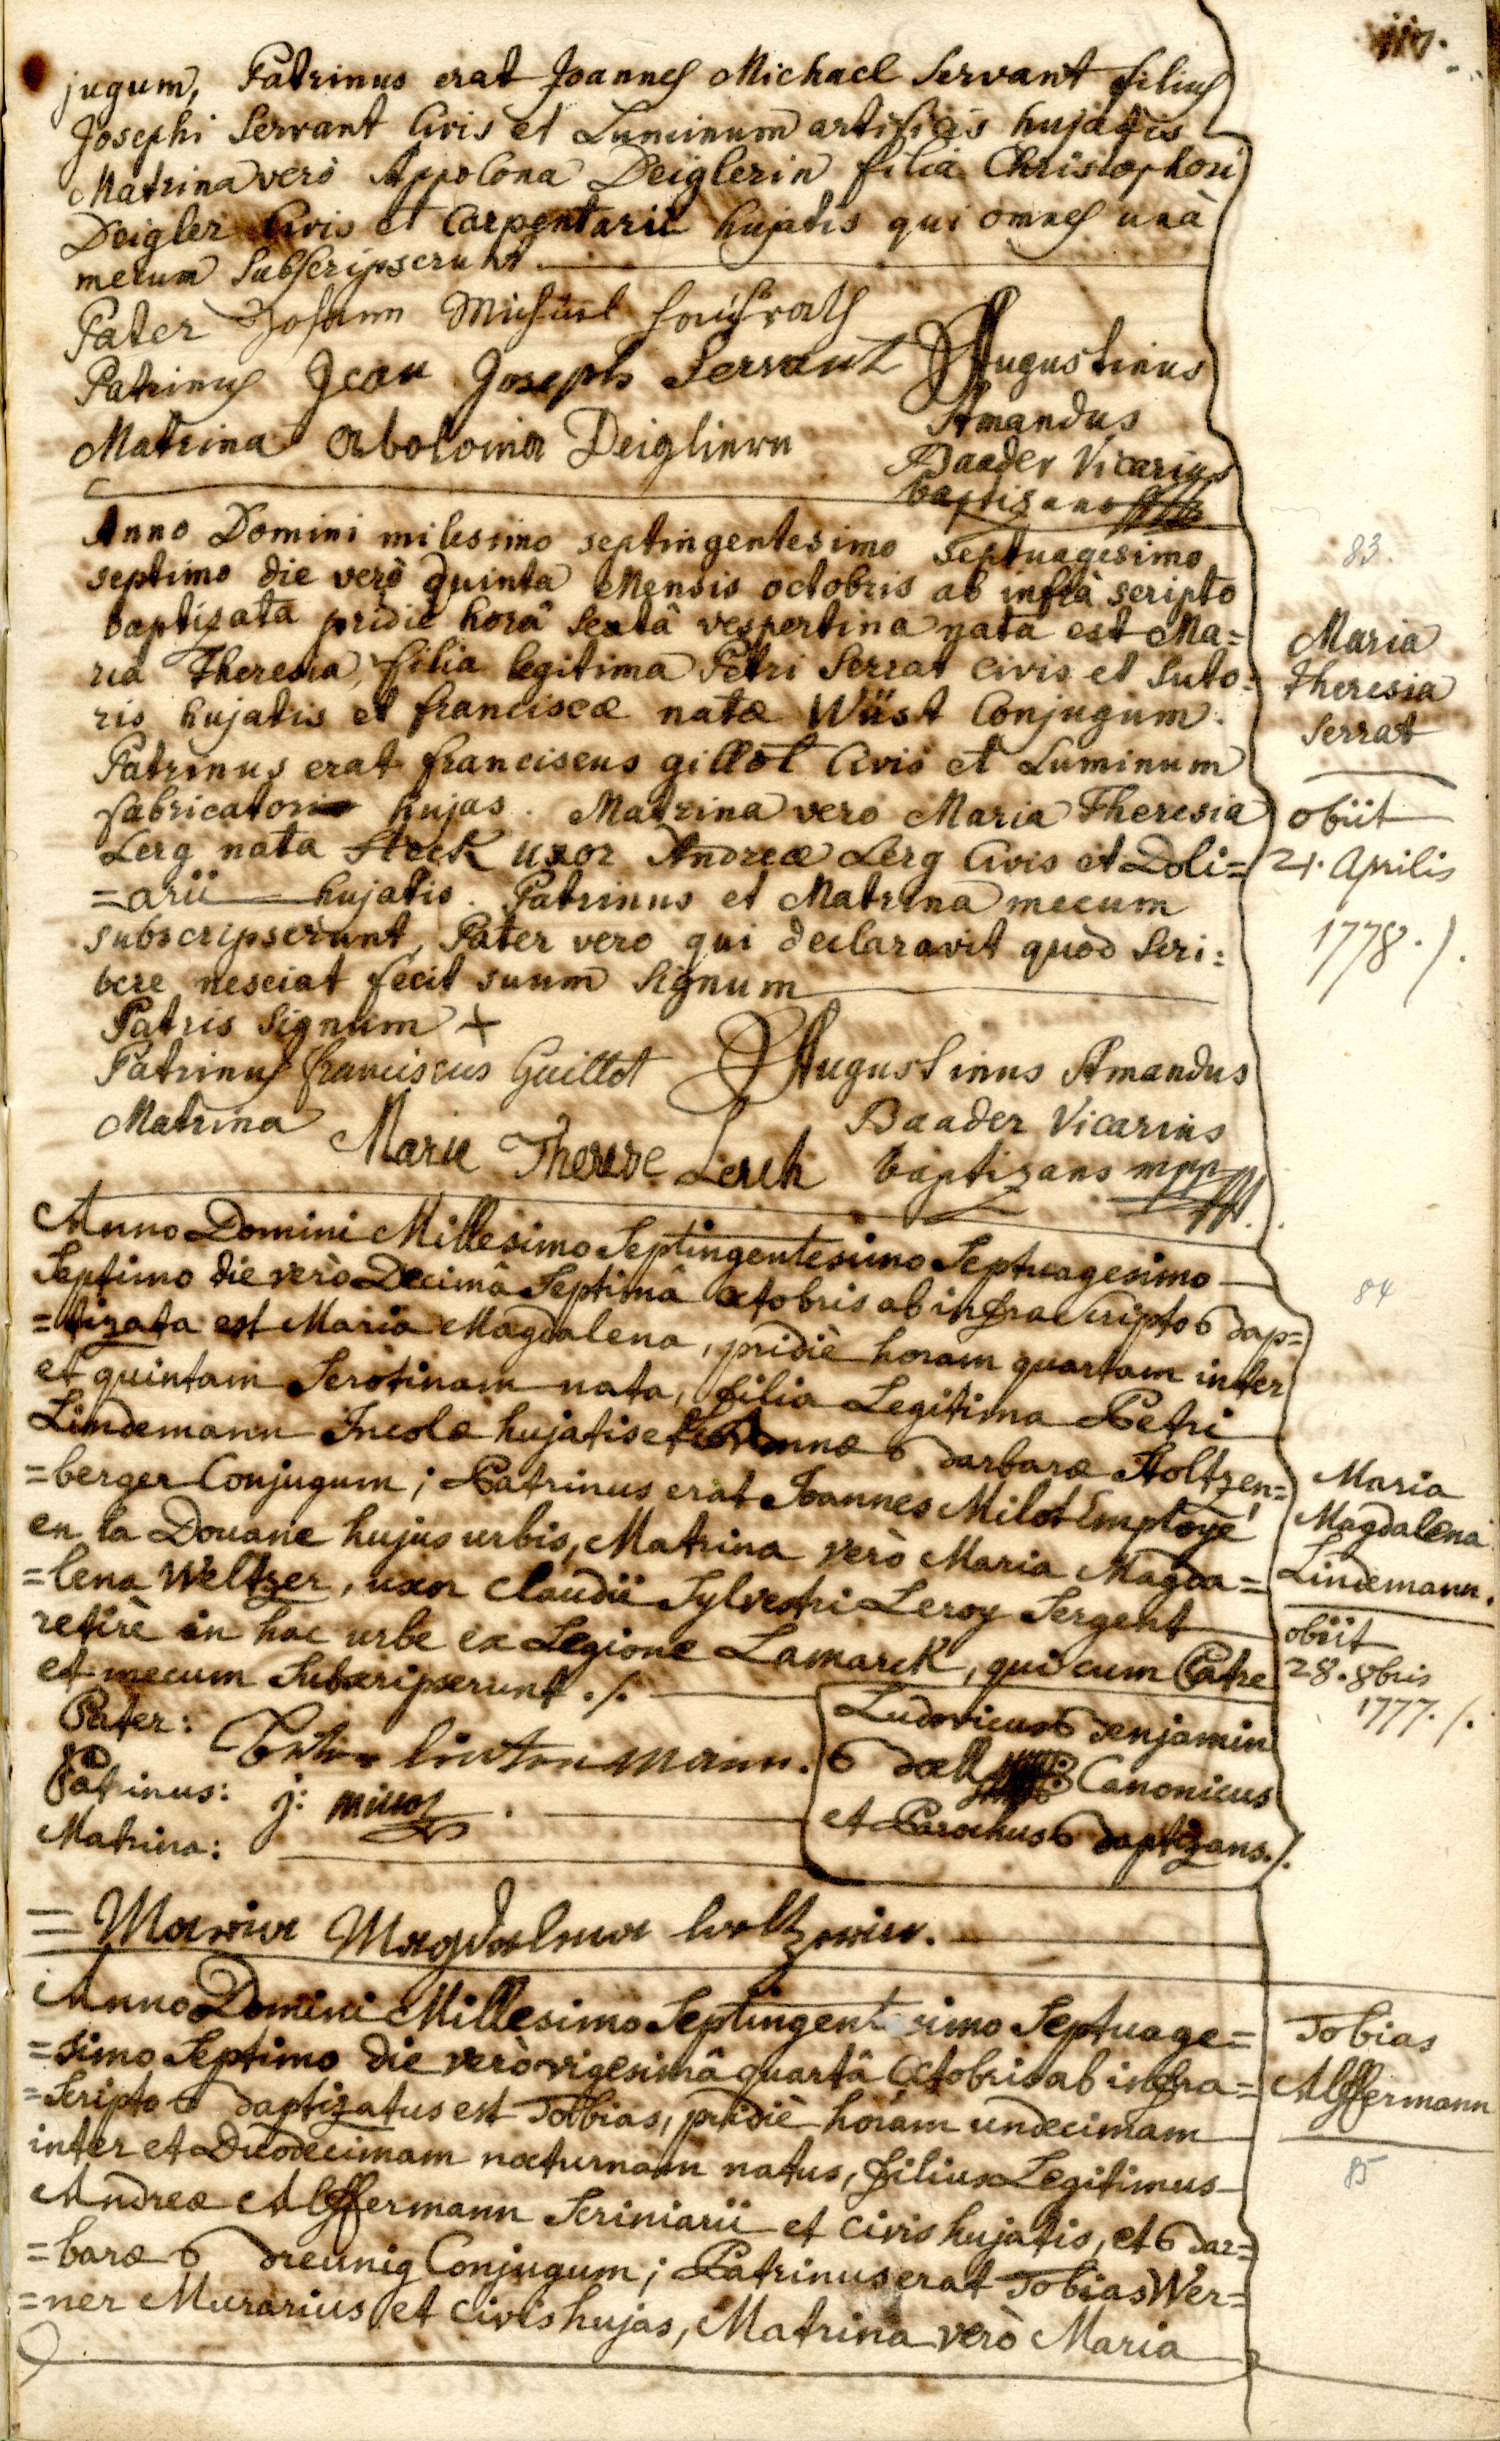 jugum, Patrinus erat Joannes Michael Servant filius
Josephi Servant Civis et Luminum artificis hujatis
Matrina verò Appolona Deiglerin filia Christophori
Deigler Civis et Carpentarii hujatis qui omnes unà
mecum Subscripserunt.
Pater Johann Michael
Patrinus Jean Joseph Servant
Matrina Abolonia Deiglinrn
Augustinus
Amandus
Baader Vicarius
baptizans
Anno Domini milesimo septingentesimo septuagesimo
septimo die verò quinta Mensis octobris ab infrà scripto
baptizata pridie horâ Sextâ vespertina nata est Ma=
ria Theresia, filia legitima Petri Serrat civis et Suto=
ris hujatis et franciscæ natæ Wüst Conjugum.
Patrinus erat franciscus gillot Civis et Luminum
fabricator hujas. Matrina vero Maria Theresia
Lerg nata Steck uxor Andreæ Lerg Civis et Doli=
=arii hujatis. Patrinus et Matrina mecum
subscripserunt, Pater vero qui declaravit quòd Scri=
bere nesciat fecit suum Signum
Patris Signum +
Patrinus franciscus Guillot
Matrina Marie Therese Lerch
Augustinus Amandus
Baader Vicarius
baptizans mpp
83.
Maria
Theresia
Serrat
obiit
21. Aprilis
1778. /.
Anno Domini Millesimo Septingentesimo Septuagesimo
Septimo die verò Decimâ Septimâ Octobris ab infra Scripto Bap=
=tizata est Maria Magdalena, pridiè horam quartam inter
et quintam Serotinam nata, filia Legitima Petri
Lindemann Incolæ hujatis et Annæ Barbaræ Holtzen=
=berger Conjugum; Patrinus erat Joannes Milot Employé
en la Douane hujus urbis, Matrina verò Maria Magda=
=lena Weltzer, uxor Claudii Sylvestri Leroy Sergent
retirè in hac urbe ex Legione Lamarck, qui cum Patre
et mecum Subscripserunt ./.
Pater:
Patrinus: j: milot.
Matrina:
Ludovicus Benjamin
Ball Canonicus
et Parochus Baptizans. /.
= Maria Magdalena Weltzerin.
84
Maria
Magdalena
Lindemann.
obiit
28. 8bris
1777. /.
Anno Domini Millesimo Septingentesimo Septuage=
=simo Septimo die verò vigesimâ quartâ Octobris ab infra=
=Scripto Baptizatus est Tobias, pridiè horam undecimam
inter et Duodecimam nocturnam natus, filius Legitimus
Andreæ Alffermann Scriniarii et civis hujatis, et Bar=
=baræ Breunig Conjugum; Patrinus erat Tobias Wer=
=ner Murarius et civis hujas, Matrina verò Maria
Tobias
Alffermann
85